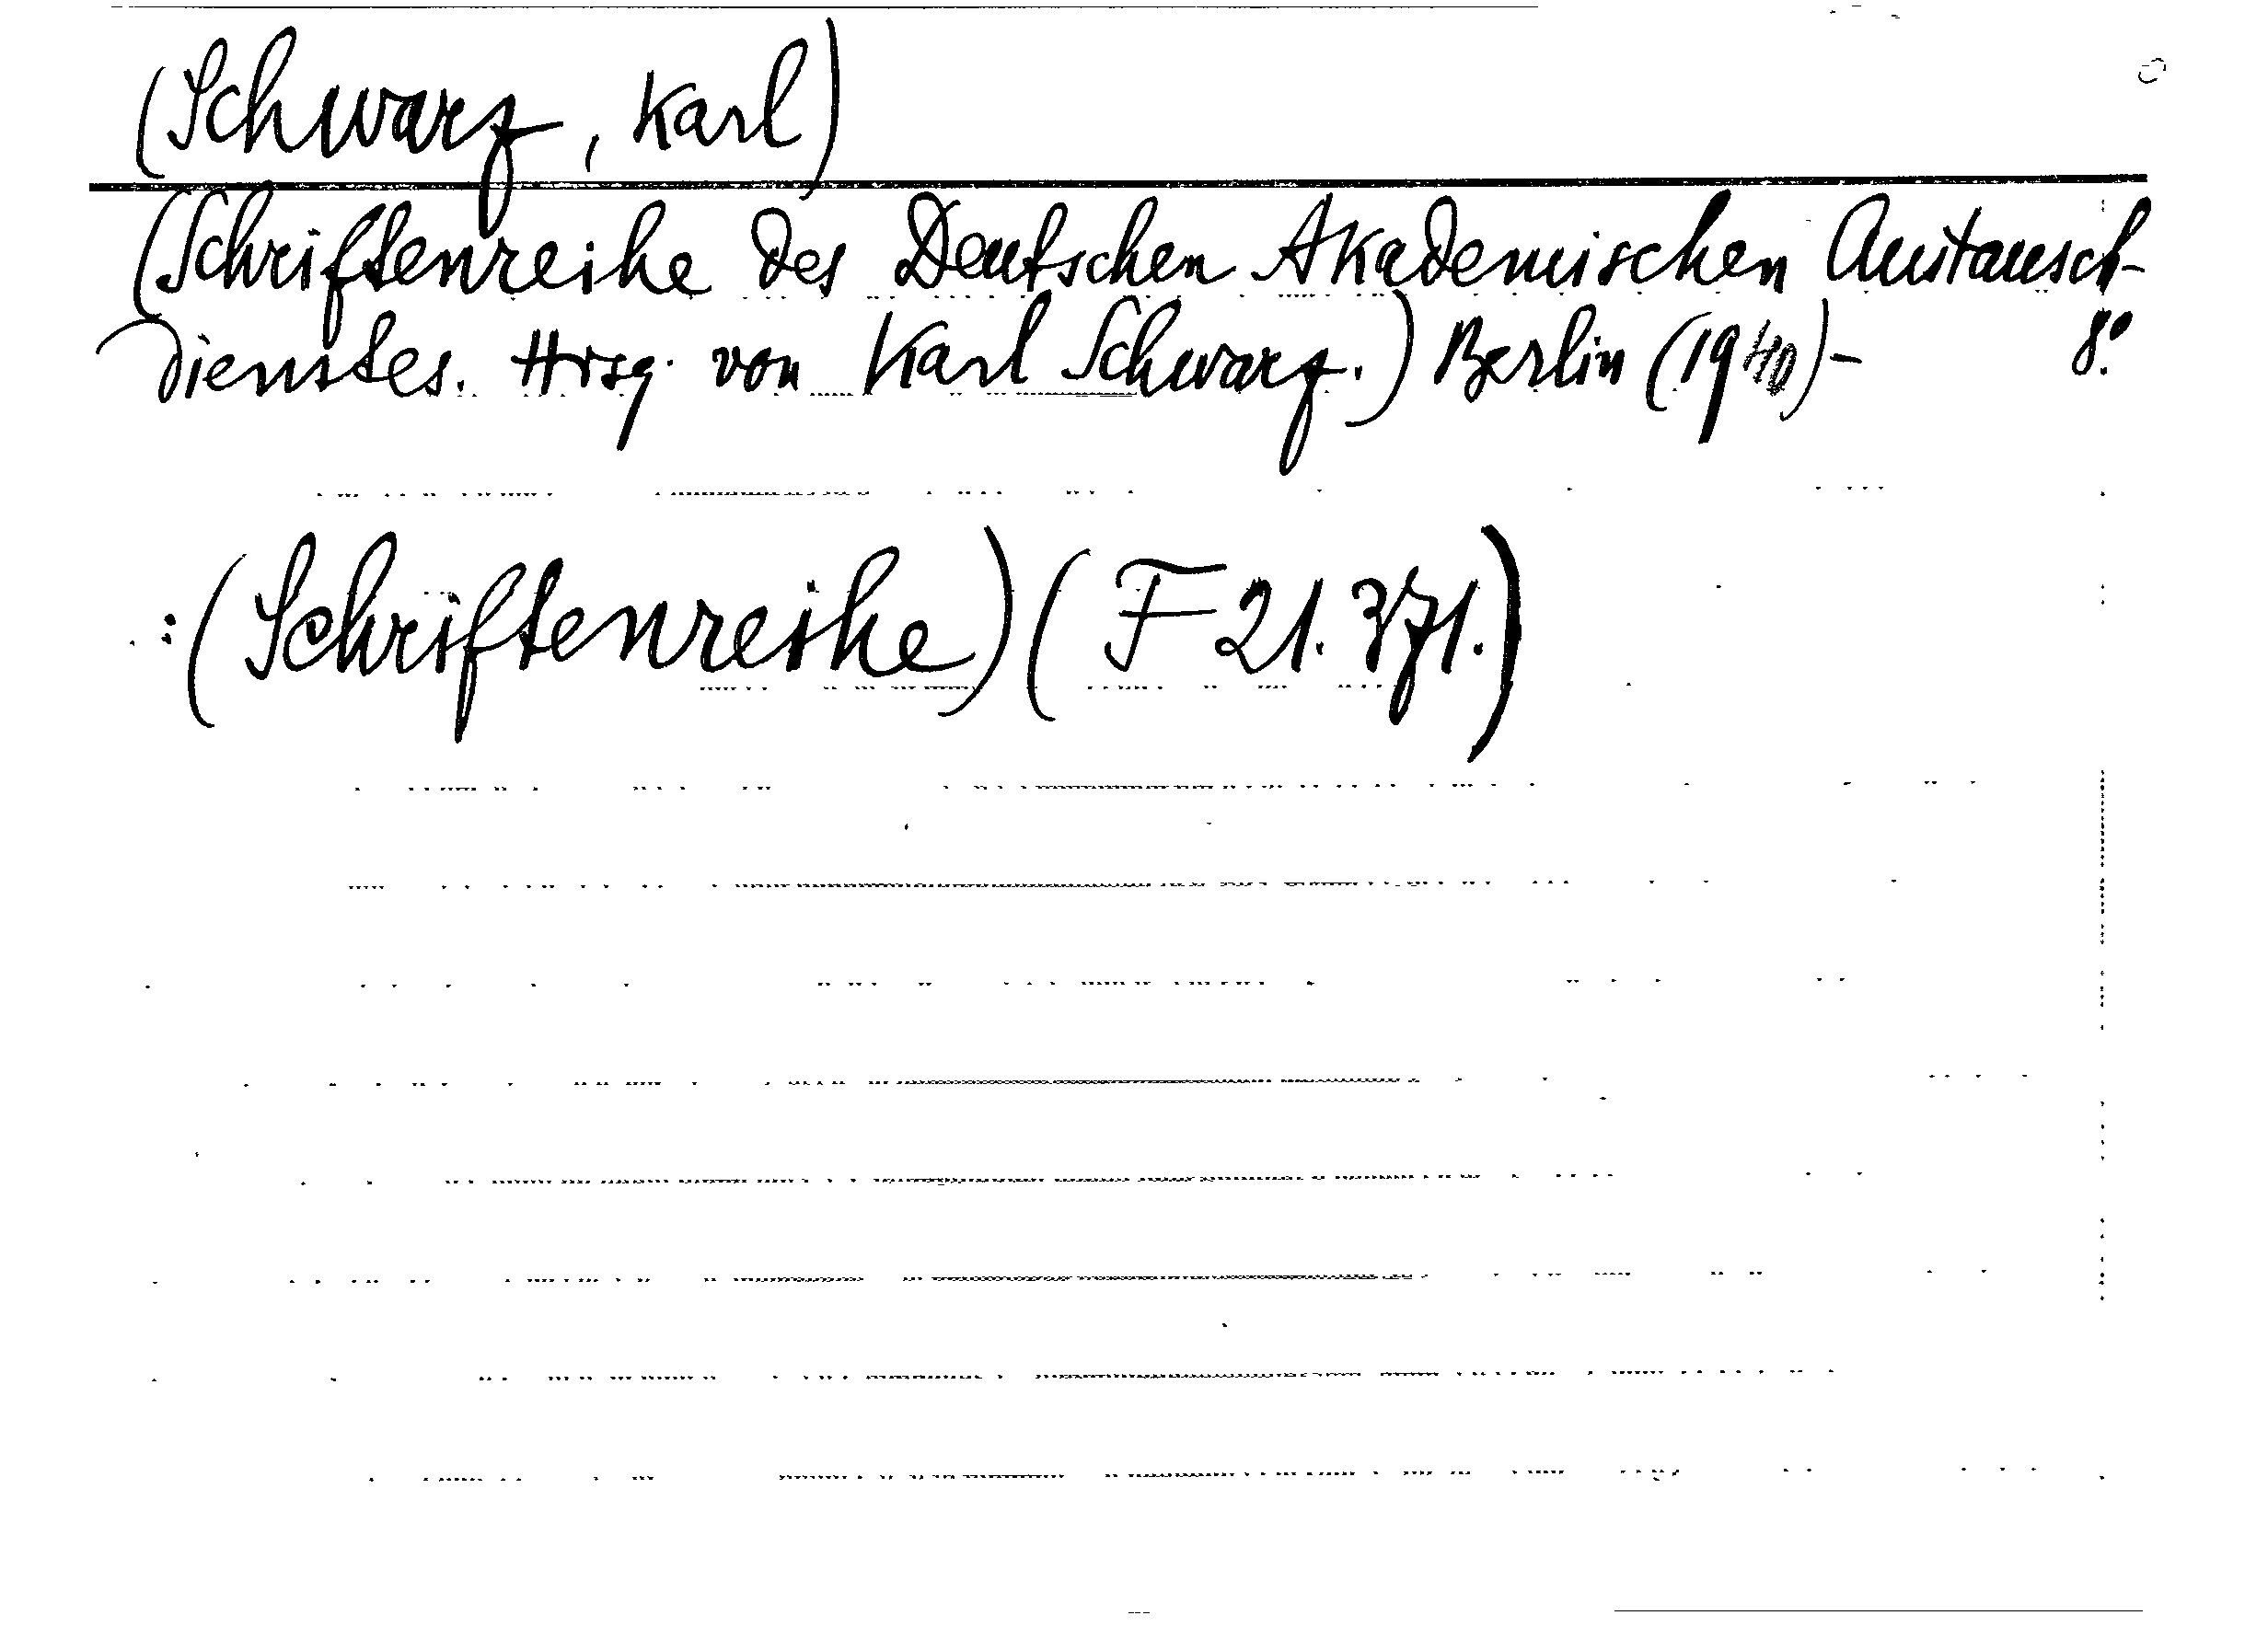 (Schwarz, Karl)
(Schriftenreihe des Deutschen Akademischen Austausch-
dienstes. Hrsg. von Karl Schwarz.) Berlin (1940)- 8°.
:(Schriftenreihe) (F 21.371.)